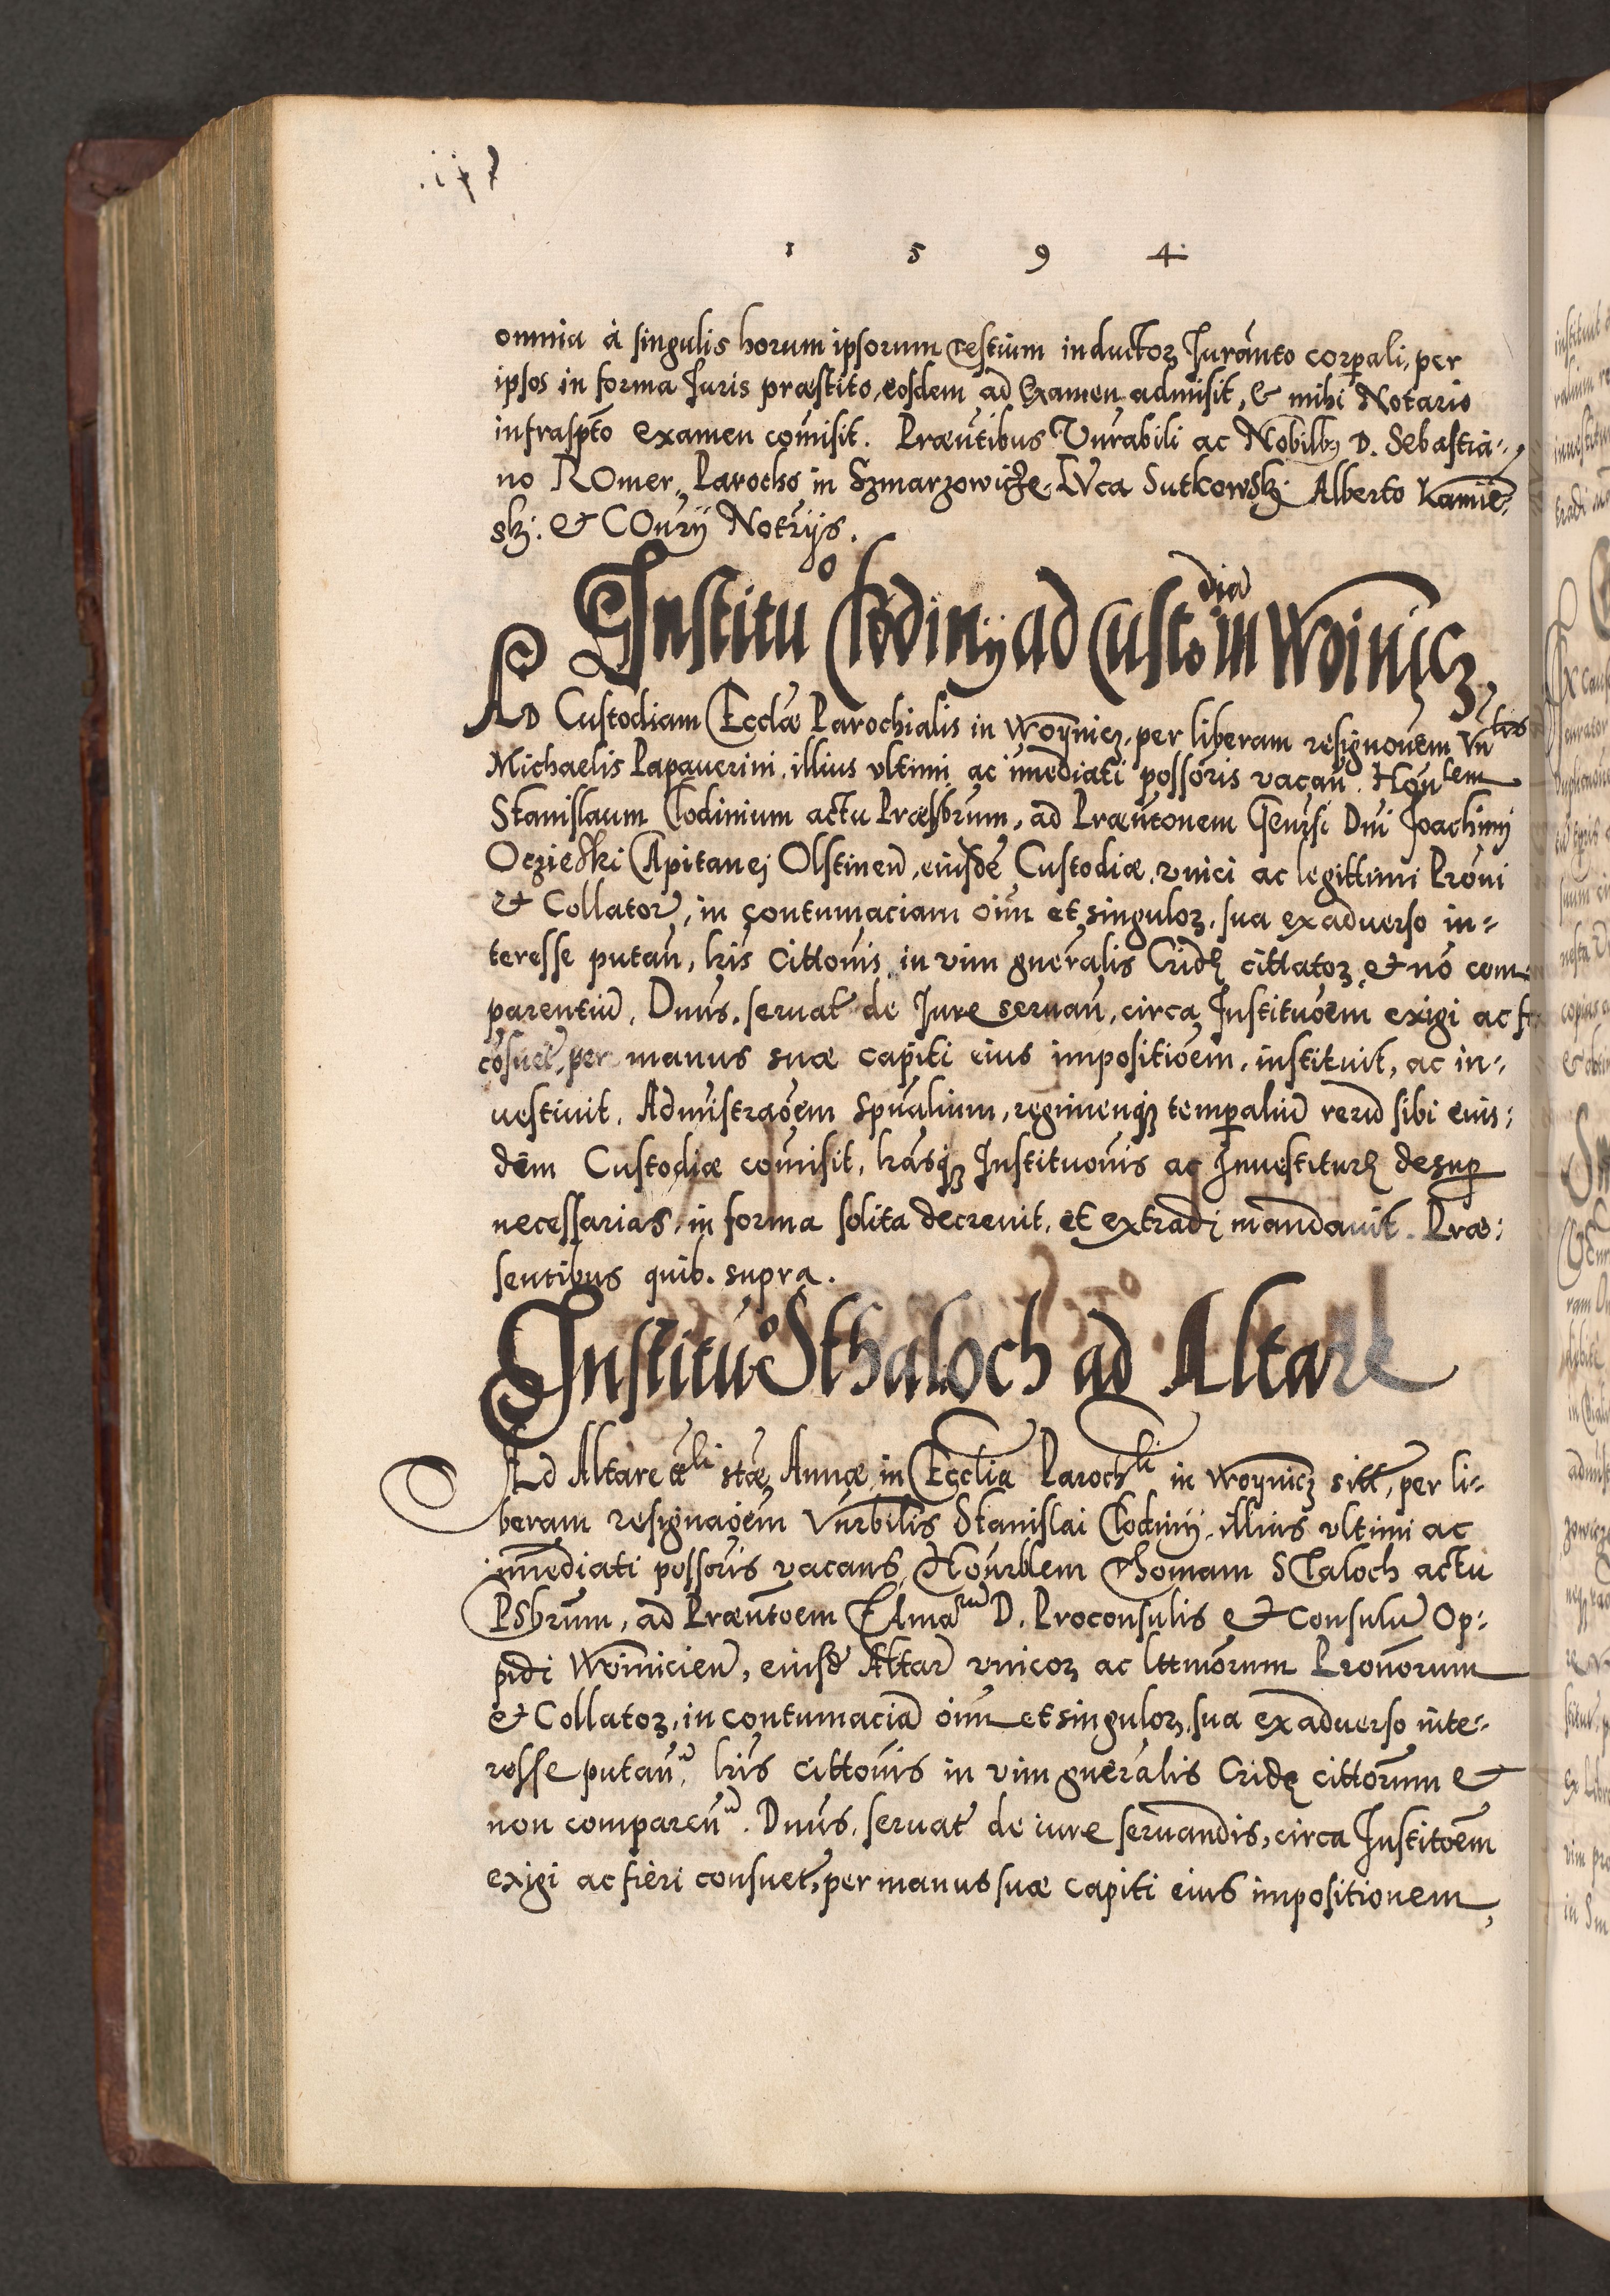 1 5 9 4
omnia à singulis horum ipsorum testium inductoꝝ Iuránto corꝑali, per
ipsos in forma Iuris præstito, eosdem ad Examen admisit, & mihi Notario
infrasp̃to examen com̃isit. Præn̄tibus Vn̄rabili ac Nobilibꝫ D. Sebastia-
no ROmer, Parocho in Szmarzowicze, LVca Sutkowsk: Alberto Kamie-
sk: & COn̄ry Not̄rijs.
Institu⁰ Clodinij ad Custodia in Woinicz
AD Custodiam Eccl̄æ Parochialis in Woÿnicz, per liberam resignonem Vn̄lis
Michaelis Papauerini, illius vltimi ac im̄ediati possoris vacan̄. Hon̄lem
Stanislaum Clodinium actu Præsb̄rum, ad Præn̄tonem Gen̄rsi Dn̄i Joachimi
Oczieski CApitanej Olstinen̄, eiusdē Custodiæ, vnici ac legittimi Pron̄i
& Collator̄, in contumaciam oim̄ et singuloꝝ, sua ex aduerso in-
teresse putan̄, lr̄is Cittonis in vim gn̄eralis Cridę cittatoꝝ & nō com-
parentiū, Dn̄us, seruat̄ de Iure seruan̄, circa Instituōem exigi ac
cōsuet̄, per manus suæ capiti eius impositiōem, instituit, ac in-
uestiuit. Admīstraōem spūalium, regimenqꝫ temꝑaliū rerū sibi eius-
dem Custodiæ com̄isit, lr̄asqꝫ Institutonis ac Inuestiturę desuꝑ
necessarias, in forma solita decreuit, et extradi mandauit. Præ-
sentibus quib. supra.
Institu⁰ Sthaloch ad Altare
AD Altare tt̄li st̄æ Annæ in Ecclia Parochli in Woÿnicz sitt̄, per li-
beram resignaōem Vn̄rbilis Stanislai Clodinij, illius vltimi ac
im̄ediati possoris vacans, Hon̄rblem Thomam STaloch actu
PSbrum, ad Præn̄toem FAmarū D. Proconsulis & Consulū Op-
pidi Woinicien̄, eiusdē Altar̄ vnicoꝝ ac lttimorum Pronorum
& Collatoꝝ, in contumaciā oim̄ et singuloꝝ, sua ex aduerso inte-
resse putan̄ū, lr̄is cittonis in vim gn̄eralis Cridę cittorum &
non comparen̄ū. Dn̄us, seruat̄ de iure seruandis, circa Institoem
exigi ac fieri consuet̄, per manus suæ capiti eius impositionem,